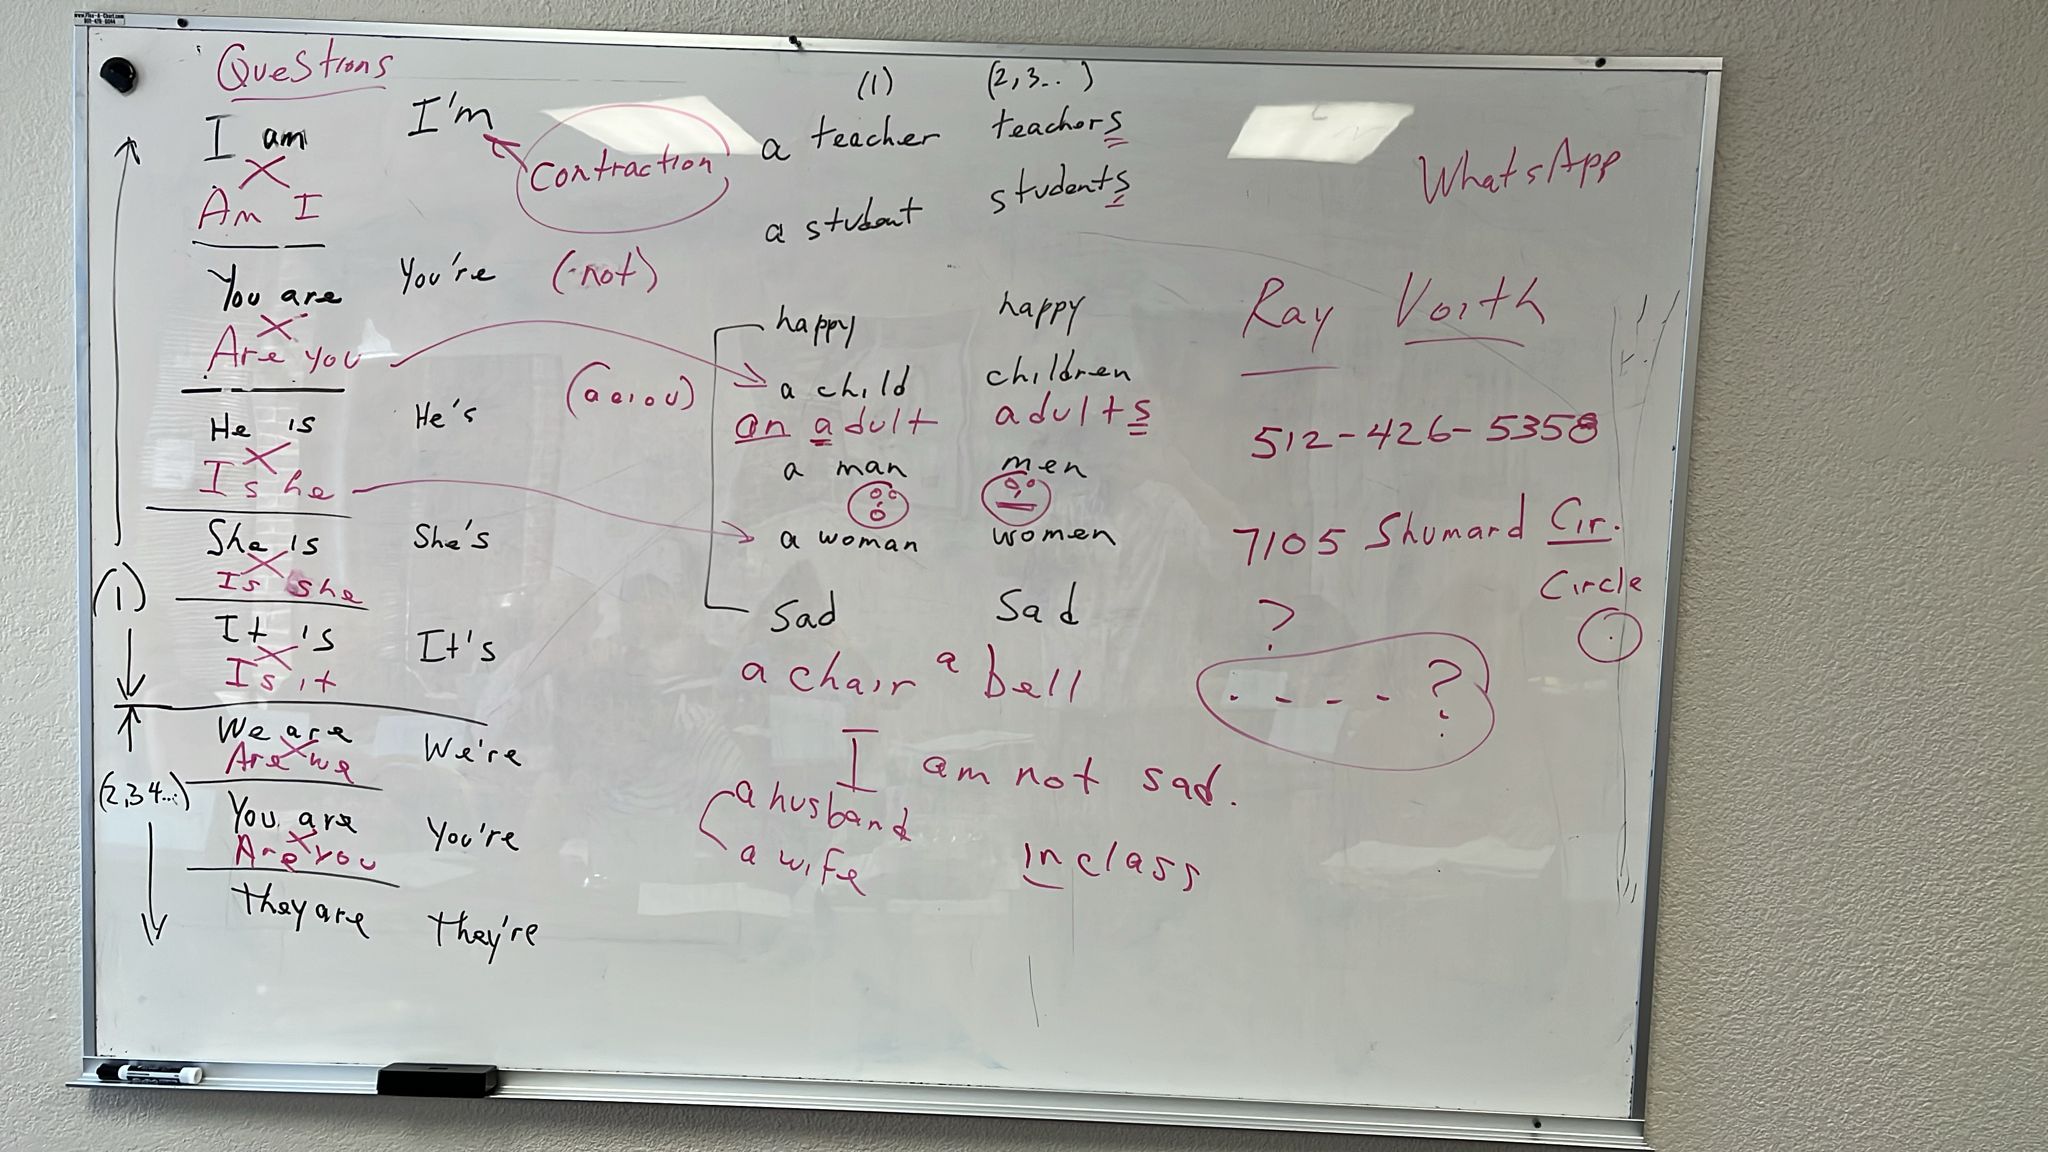 Questions
I am
I'm
Contraction
Am I
You are
You're (not)
Are you
(a e i o u)
He is
He's
Is he
She is
She's
Is she
(1)
It is
It's
Is it
We are
We're
Are we
(2,3 4...)
You are
You're
Are you
They are
They're
(1) (2,3...)
a teacher teachers
a student students
happy happy
a child children
an adult adults
a man men
a woman women
Sad Sad
a chair a bell
I am not sad.
a husband
a wife
in class
WhatsApp
Ray Voith
512-426-5358
7105 Shumard Cir.
Circle
?
. - - - ?